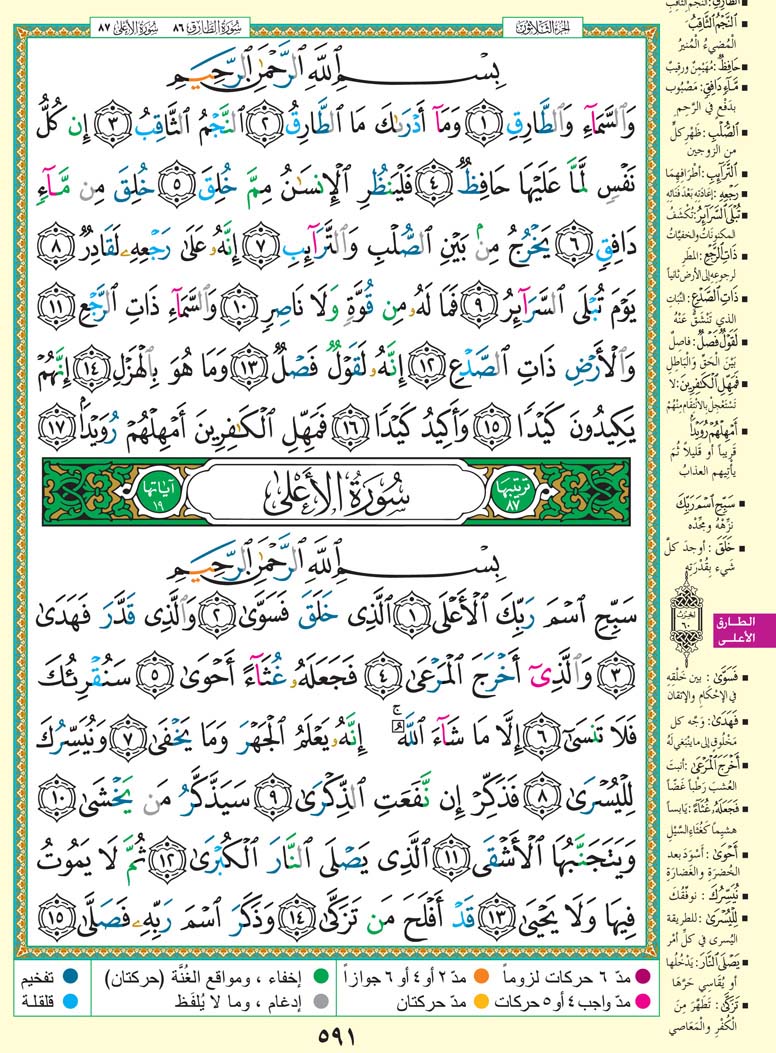 الجزء الثلاثون
سورة الطارق ٨٦ سورة الأعلى ٨٧
بِسْمِ ٱللَّهِ ٱلرَّحْمَٰنِ ٱلرَّحِيمِ
وَٱلسَّمَآءِ وَٱلطَّارِقِ ١ وَمَآ أَدْرَىٰكَ مَا ٱلطَّارِقُ ٢ ٱلنَّجْمُ ٱلثَّاقِبُ ٣ إِن كُلُّ
نَفْسٍ لَّمَّا عَلَيْهَا حَافِظٌ ٤ فَلْيَنظُرِ ٱلْإِنسَٰنُ مِمَّ خُلِقَ ٥ خُلِقَ مِن مَّآءٍ
دَافِقٍ ٦ يَخْرُجُ مِنۢ بَيْنِ ٱلصُّلْبِ وَٱلتَّرَآئِبِ ٧ إِنَّهُۥ عَلَىٰ رَجْعِهِۦ لَقَادِرٌ ٨
يَوْمَ تُبْلَى ٱلسَّرَآئِرُ ٩ فَمَا لَهُۥ مِن قُوَّةٍ وَلَا نَاصِرٍ ١٠ وَٱلسَّمَآءِ ذَاتِ ٱلرَّجْعِ ١١
وَٱلْأَرْضِ ذَاتِ ٱلصَّدْعِ ١٢ إِنَّهُۥ لَقَوْلٌ فَصْلٌ ١٣ وَمَا هُوَ بِٱلْهَزْلِ ١٤ إِنَّهُمْ
يَكِيدُونَ كَيْدًا ١٥ وَأَكِيدُ كَيْدًا ١٦ فَمَهِّلِ ٱلْكَٰفِرِينَ أَمْهِلْهُمْ رُوَيْدًۢا ١٧
ترتيبها ٨٧ سُورَةُ الأَعْلَىٰ آياتها ١٩
بِسْمِ ٱللَّهِ ٱلرَّحْمَٰنِ ٱلرَّحِيمِ
سَبِّحِ ٱسْمَ رَبِّكَ ٱلْأَعْلَى ١ ٱلَّذِى خَلَقَ فَسَوَّىٰ ٢ وَٱلَّذِى قَدَّرَ فَهَدَىٰ
٣ وَٱلَّذِىٓ أَخْرَجَ ٱلْمَرْعَىٰ ٤ فَجَعَلَهُۥ غُثَآءً أَحْوَىٰ ٥ سَنُقْرِئُكَ
فَلَا تَنسَىٰٓ ٦ إِلَّا مَا شَآءَ ٱللَّهُ ۚ إِنَّهُۥ يَعْلَمُ ٱلْجَهْرَ وَمَا يَخْفَىٰ ٧ وَنُيَسِّرُكَ
لِلْيُسْرَىٰ ٨ فَذَكِّرْ إِن نَّفَعَتِ ٱلذِّكْرَىٰ ٩ سَيَذَّكَّرُ مَن يَخْشَىٰ ١٠
وَيَتَجَنَّبُهَا ٱلْأَشْقَى ١١ ٱلَّذِى يَصْلَى ٱلنَّارَ ٱلْكُبْرَىٰ ١٢ ثُمَّ لَا يَمُوتُ
فِيهَا وَلَا يَحْيَىٰ ١٣ قَدْ أَفْلَحَ مَن تَزَكَّىٰ ١٤ وَذَكَرَ ٱسْمَ رَبِّهِۦ فَصَلَّىٰ ١٥
■ ٱلنَّجْمُ ٱلثَّاقِبُ:
المُضِيءُ المُنيرُ
■ حَافِظٌ: مُهَيْمِنٌ ورقيبٌ
■ مَّآءٍ دَافِقٍ: مَصْبُوبٍ
بدَفْعٍ في الرَّحِمِ
■ ٱلصُّلْبِ: ظَهْرِ كلٍّ
من الزوجين
■ ٱلتَّرَآئِبِ: أطْرافِهِمَا
■ رَجْعِهِ: إعَادَتِهِ بَعْدَ فَنَائِهِ
■ تُبْلَى ٱلسَّرَآئِرُ: تُكْشَفُ
المكنوناتُ والخفيَّاتُ
■ ذَاتِ ٱلرَّجْعِ: المَطَرِ
لرجوعِهِ إلى الأرضِ ثانياً
■ ذَاتِ ٱلصَّدْعِ: النَّباتِ
الذي تَنْشَقُّ عَنْهُ
■ لَقَوْلٌ فَصْلٌ: فاصِلٌ
بَيْنَ الحَقِّ والباطلِ
■ فَمَهِّلِ ٱلْكَٰفِرِينَ: لا
تَسْتَعْجِلْ بالانتقامِ مِنْهُمْ
■ أَمْهِلْهُمْ رُوَيْدًا:
قريباً أو قليلاً ثُمَّ
يأتِيهِم العذابُ
■ سَبِّحِ ٱسْمَ رَبِّكَ
نزِّهْهُ ومجِّدْهُ
■ خَلَقَ: أوجدَ كلَّ
شيءٍ بقُدْرَتِهِ
٦٠
الطارق
الأعلى
■ فَسَوَّىٰ: بين خَلْقِهِ
في الإحْكامِ والإتقانِ
■ فَهَدَىٰ: وَجَّهَ كل
مَخْلُوقٍ إلى ما ينبَغي لَهُ
■ أَخْرَجَ ٱلْمَرْعَىٰ: أنبتَ
العُشبَ رَطْباً غَضّاً
■ فَجَعَلَهُۥ غُثَآءً: يَابساً
هَشيماً كَغُثاءِ السَّيْلِ
■ أَحْوَىٰ: أَسْوَدَ بعد
الخُضرَةِ والغَضَارَةِ
■ نُيَسِّرُكَ: نوفِّقُكَ
■ لِلْيُسْرَىٰ: للطريقة
اليُسرى في كلِّ أَمْرٍ
■ يَصْلَى ٱلنَّارَ: يَدْخُلُها
أو يُقَاسِي حَرَّهَا
■ تَزَكَّىٰ: تَطَهَّرَ مِنَ
الكُفْرِ والمَعَاصي
مدّ ٦ حركات لزوماً مدّ ٢ أو ٤ أو ٦ جوازاً إخفاء ، ومواقع الغُنَّة (حركتان) تفخيم
مدّ واجب ٤ أو ٥ حركات مدّ حركتان إدغام ، وما لا يُلفَظ قلقلة
٥٩١